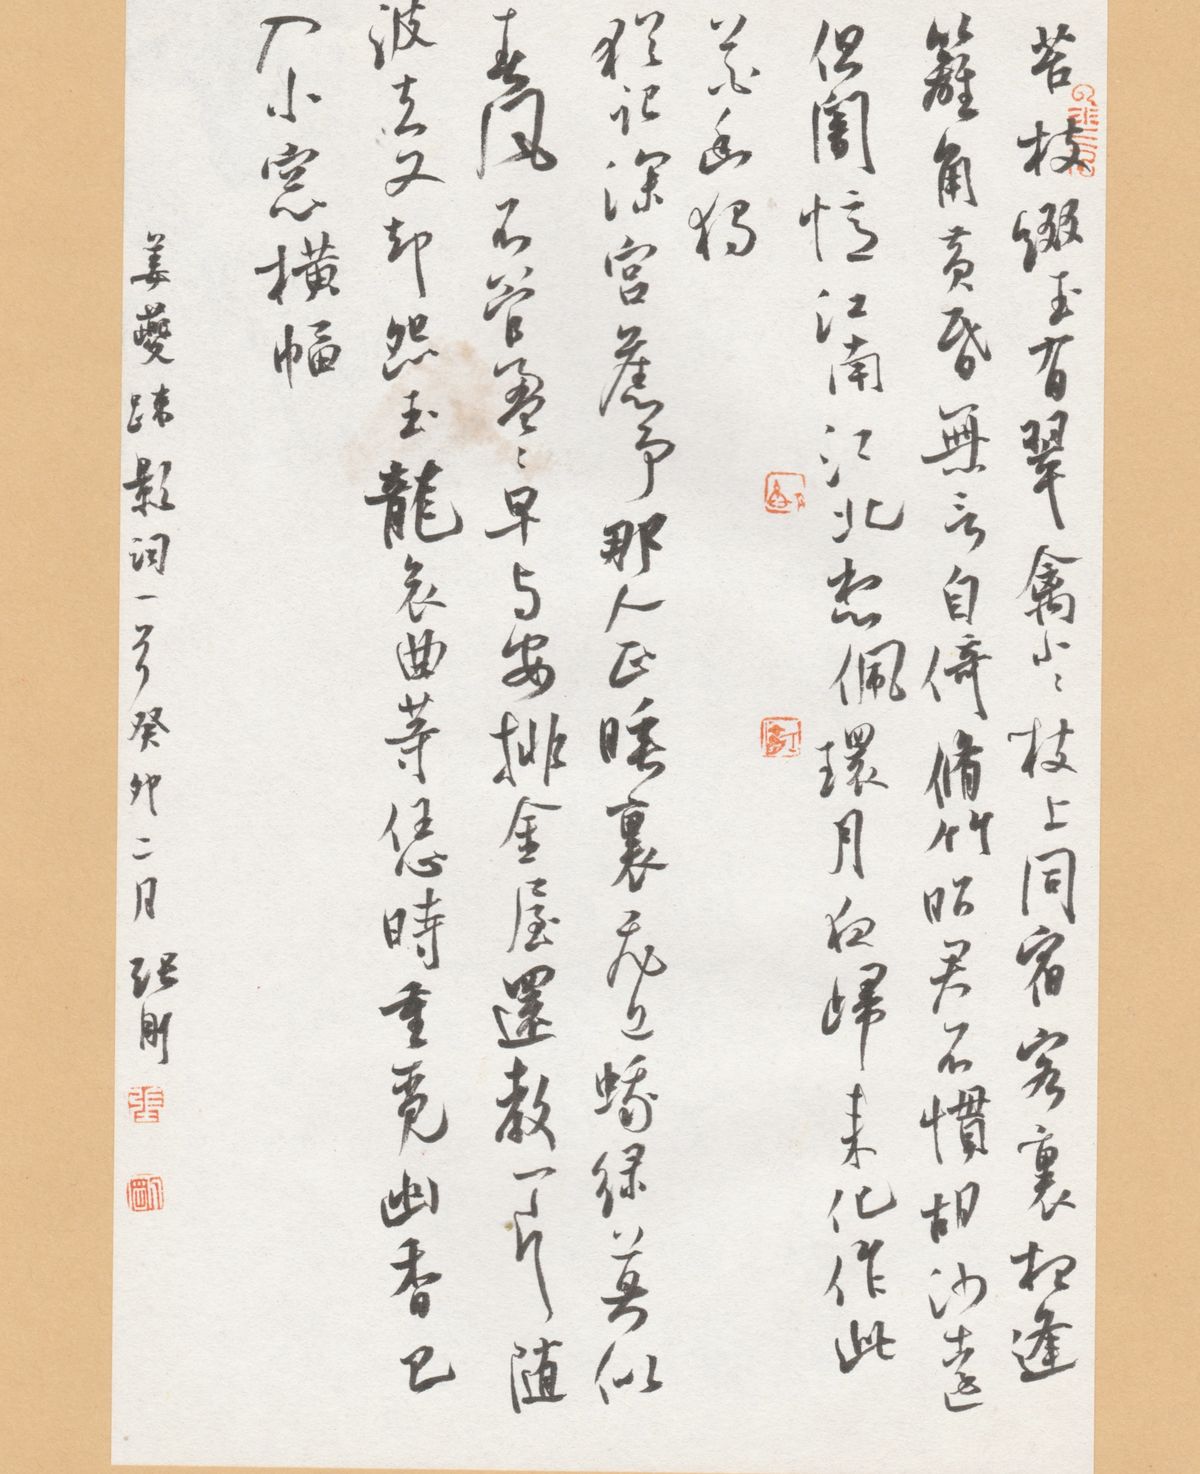 苔枝綴玉有翠禽小〻枝上同宿客裏相逢
籬角黄昏無言自倚脩竹昭君不慣胡沙遠
但闇憶江南江北想佩環月夜歸来化作此
花幽獨
猶记深宮舊事那人正睡裏飛近蛾緑莫似
春風不管盈〻早与安排金屋還教一片随
波去又却怨玉龍哀曲等恁時重覓幽香已
入小窓横幅
姜夔疎影词一首癸卯二月張剛
張
剛